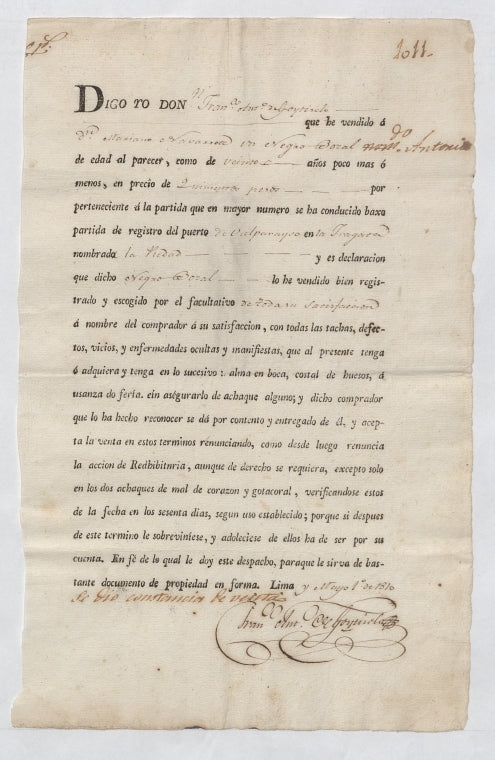 1011.
DIGO YO DON Franco. Anto. de Goyriela
que he vendido á
Dn. Mariano Navarrete un Negro Bozal nomdo. Antonio
de edad al parecer, como de veinte años poco mas ó
menos, en precio de Quinientos pesos por
perteneciente á la partida que en mayor numero se ha conducido baxa
partida de registro del puerto de Valparayso en la Fragata
nombrada la Piedad y es declaracion
que dicho Negro Bozal lo he vendido bien regis-
trado y escogido por el facultativo de toda su satisfaccion
á nombre del comprador á su satisfaccion, con todas las tachas, defec-
tos, vicios, y enfermedades ocultas y manifiestas, que al presente tenga
ó adquiera y tenga en lo sucesivo: alma en boca, costal de huesos, á
usanza do feria. ein asegurarlo de achaque alguno; y dicho comprador
que lo ha hecho reconocer se dá por contento y entregado de él, y acep-
ta la venta en estos terminos renunciando, como desde luego renuncia
la accion de Redhibitnria, aunque de derecho se requiera, excepto solo
en los dos achaques de mal de corazon y gotacoral, verificandose estos
de la fecha en los sesenta dias, segun uso establecido; porque si despues
de este termino le sobreviniese, y adoleciese de ellos ha de ser por su
cuenta. En fé de lo qual le doy este despacho, paraque le sirva de bas-
tante documento de propiedad en forma. Lima y Mayo 1o. de 1810
Se dio constancia de venta
Franco. Anto. de Goyriela